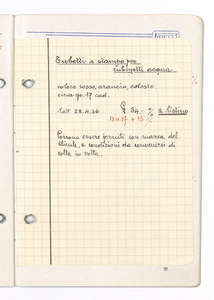 Tubetti a stampo per
rubinetti acqua
colore rosso, arancio, celeste.
circa gr. 17 cad.
lett. 28.4.26 £ 34.- % a listino
13.4.37 + 15 %
Possono essere forniti con marca del
cliente, a condizioni da convenirsi di
volta in volta.